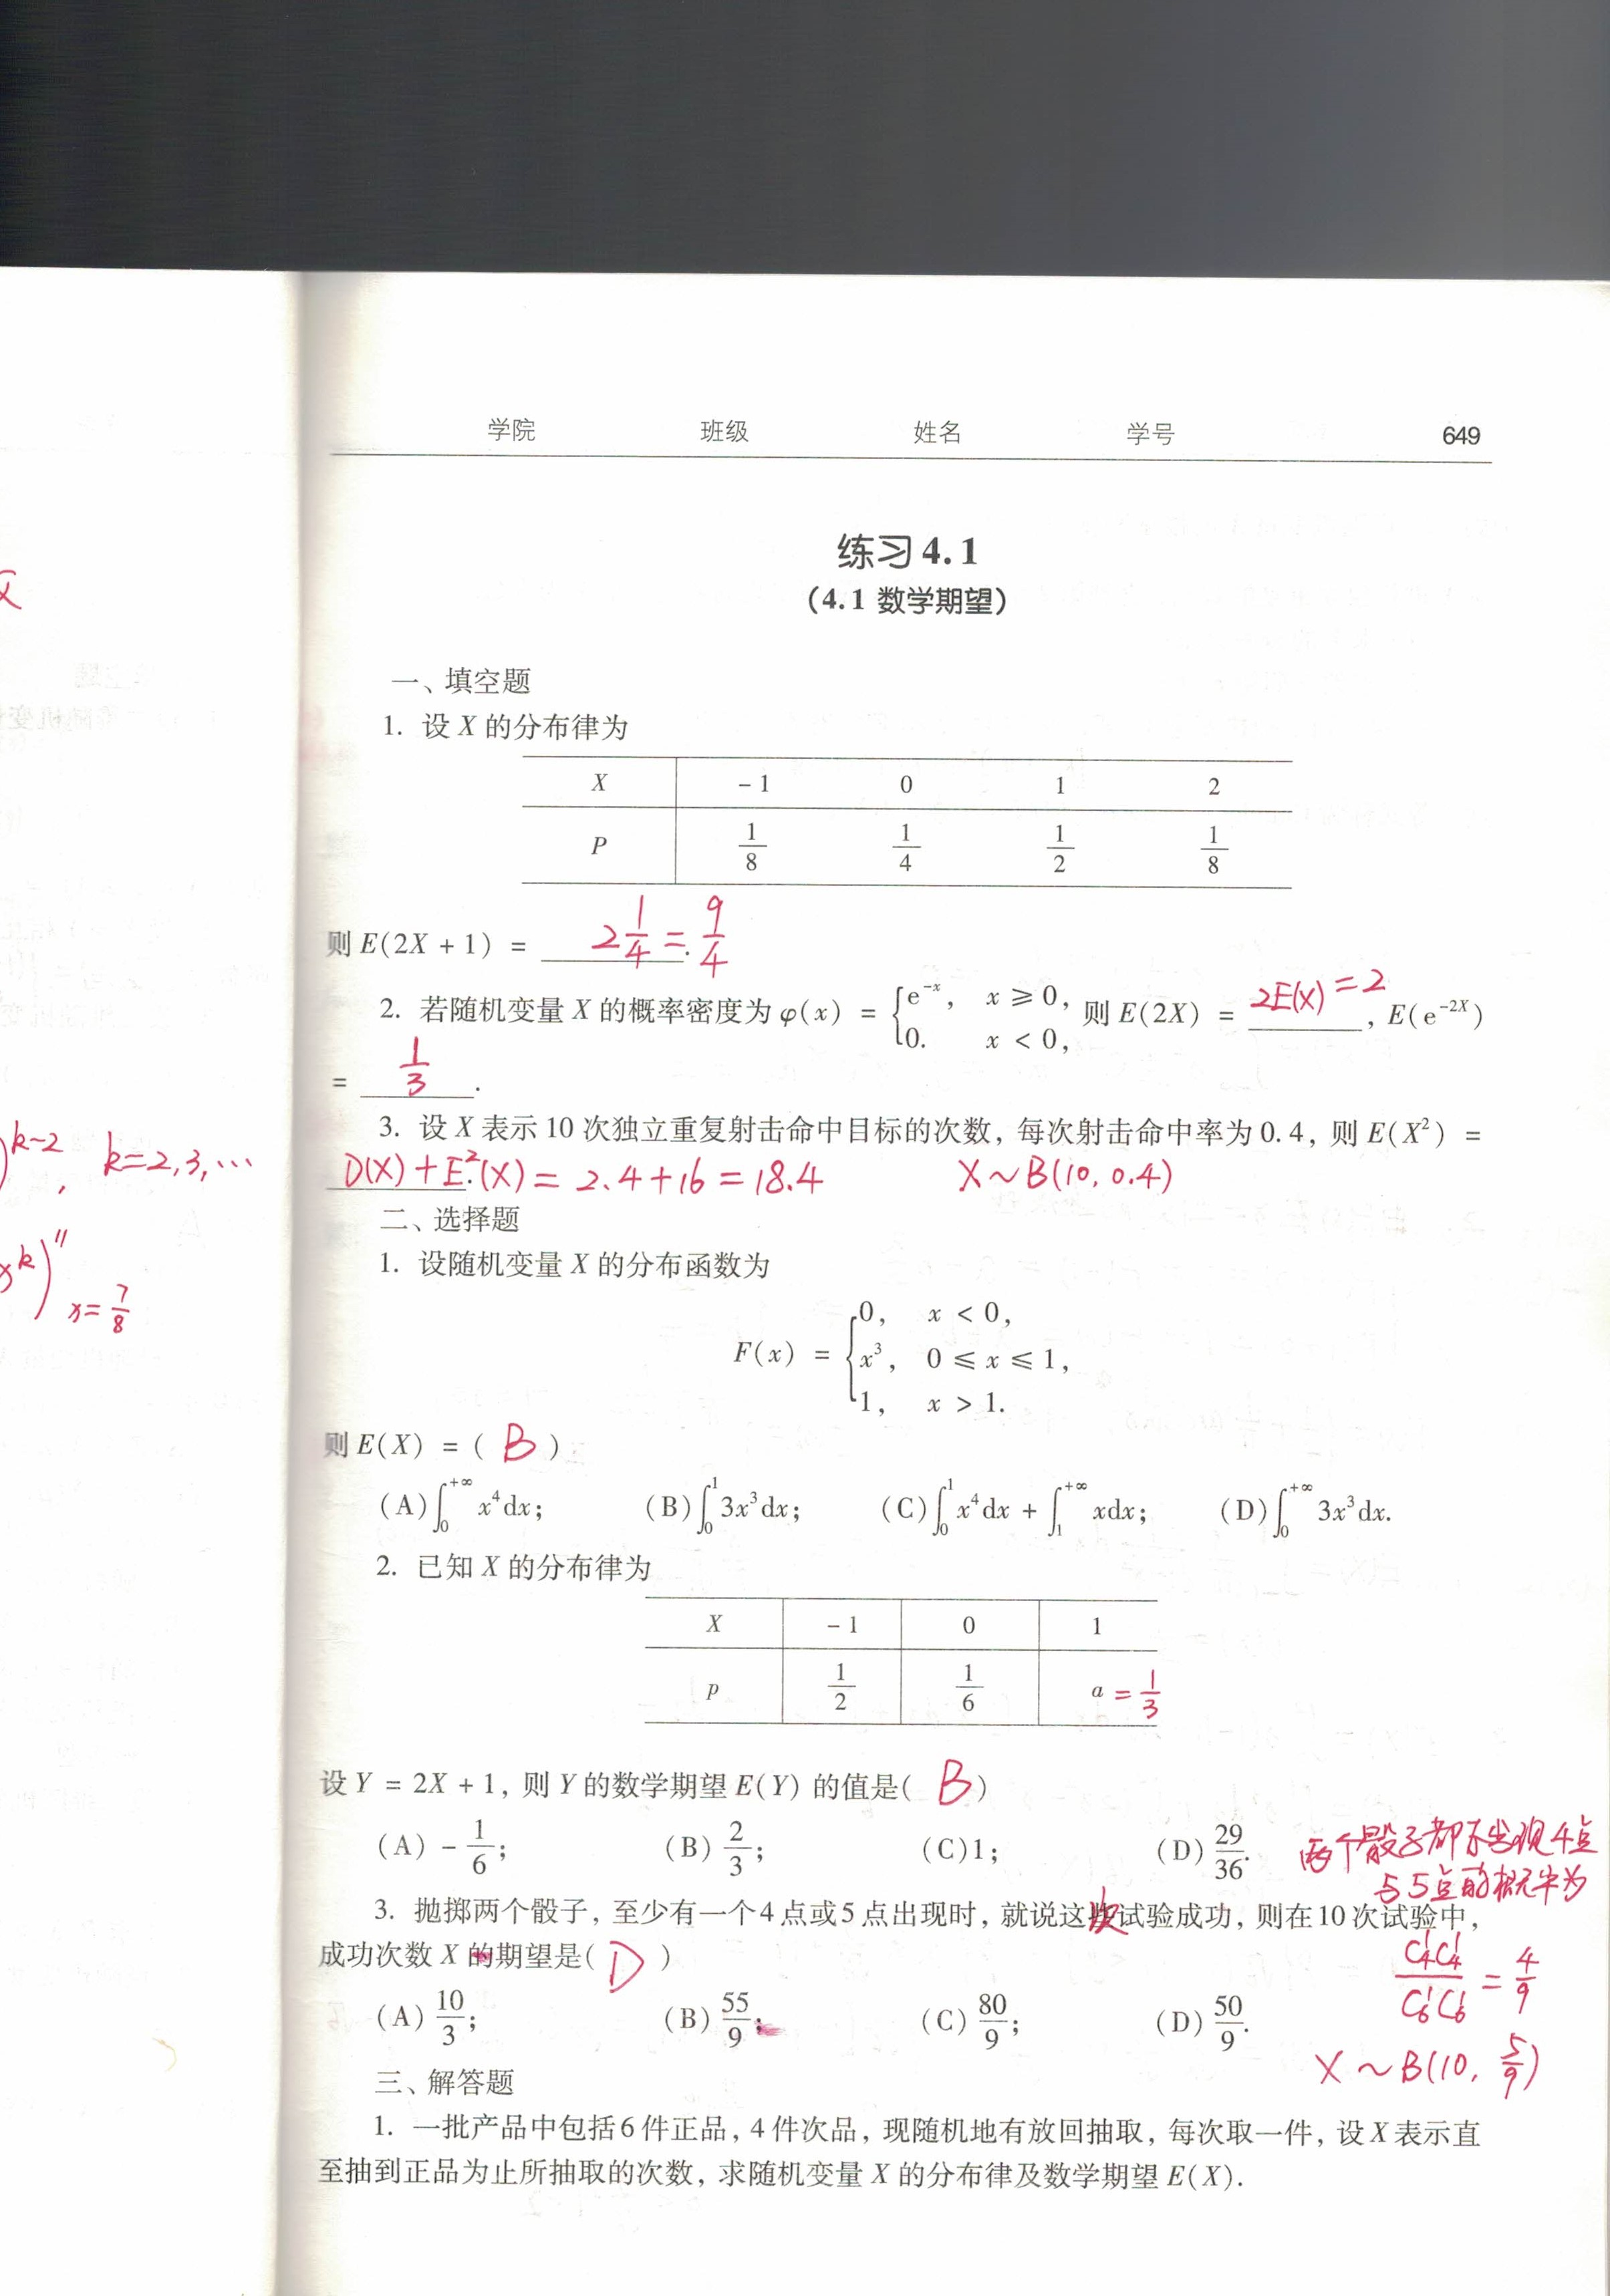 学院 班级 姓名 学号 649
练习4.1
(4.1 数学期望)
一、填空题
1. 设 X 的分布律为
X -1 0 1 2
P 1/8 1/4 1/2 1/8
则 E(2X + 1) = 2 1/4 = 9/4.
2. 若随机变量 X 的概率密度为 φ(x) = { e^{-x}, x ⩾ 0, 0. x < 0, 则 E(2X) = 2E(X) = 2, E(e^{-2X})
= 1/3.
3. 设 X 表示 10 次独立重复射击命中目标的次数, 每次射击命中率为 0.4, 则 E(X²) =
D(X) + E²(X) = 2.4 + 16 = 18.4. X ~ B(10, 0.4)
二、选择题
1. 设随机变量 X 的分布函数为
F(x) = { 0, x < 0,
x³, 0 ⩽ x ⩽ 1,
1, x > 1.
则 E(X) = ( B )
(A) ∫_0^{+∞} x⁴dx; (B) ∫_0^1 3x³dx; (C) ∫_0^1 x⁴dx + ∫_1^{+∞} xdx; (D) ∫_0^{+∞} 3x³dx.
2. 已知 X 的分布律为
X -1 0 1
p 1/2 1/6 a = 1/3
设 Y = 2X + 1, 则 Y 的数学期望 E(Y) 的值是( B )
(A) -1/6; (B) 2/3; (C) 1; (D) 29/36.
两个骰子都不出现4点
与5点的概率为
3. 抛掷两个骰子, 至少有一个4点或5点出现时, 就说这次试验成功, 则在10次试验中,
成功次数 X 的期望是( D )
(A) 10/3; (B) 55/9; (C) 80/9; (D) 50/9.
C_4^1C_4^1 / C_6^1C_6^1 = 4/9
X ~ B(10, 5/9)
三、解答题
1. 一批产品中包括6件正品, 4件次品, 现随机地有放回抽取, 每次取一件, 设 X 表示直
至抽到正品为止所抽取的次数, 求随机变量 X 的分布律及数学期望 E(X).
)^{k-2}, k=2,3,…
x^k)'' x=7/8